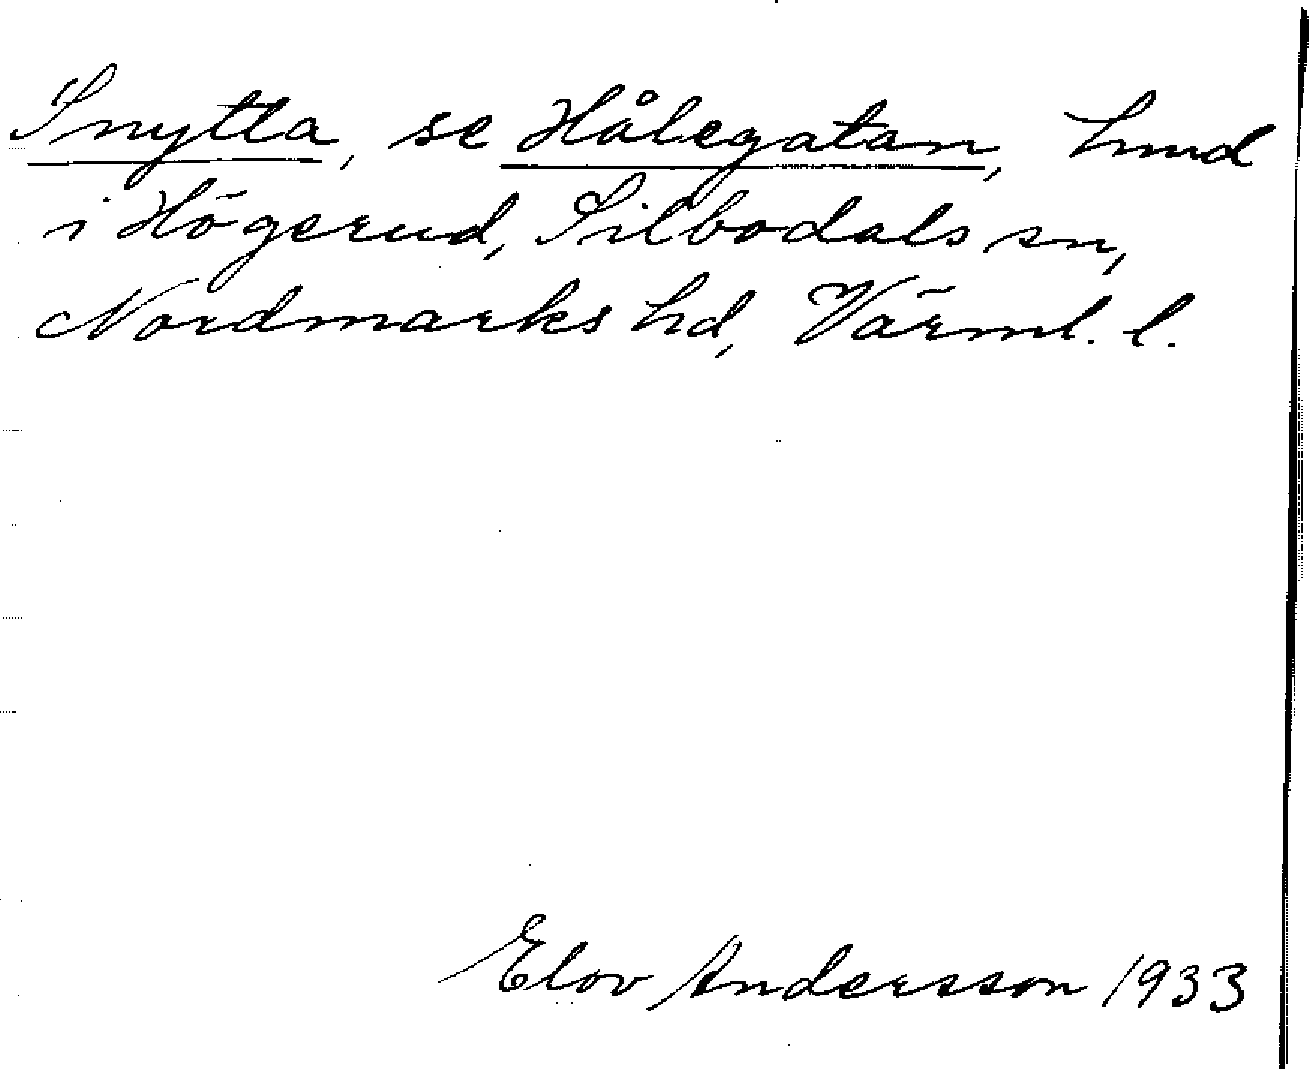 Snytta, se Hålegatan, hmd
i Högerud, Silbodals sn,
Nordmarks hd, Värml. l.
Elov Andersson 1933